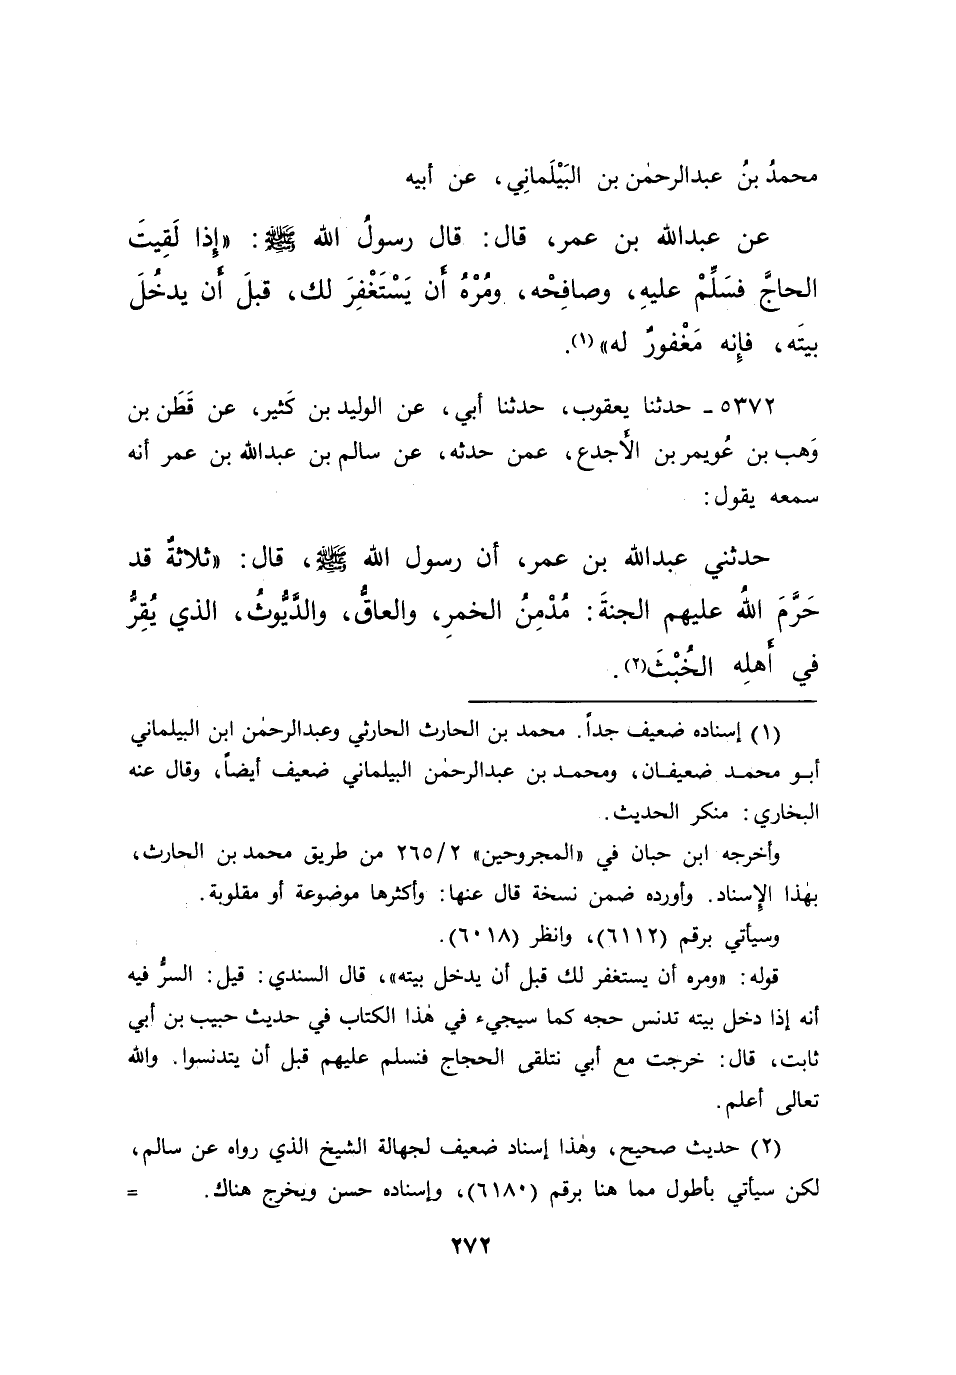 محمدُ بنُ عبدالرحمٰن بن البَيْلَمانِي، عن أبيه
عن عبدالله بن عمر، قال: قال رسولُ الله ﷺ: «إِذا لَقِيتَ
الحاجَّ فسَلِّمْ عليهِ، وصافِحْه، ومُرْهُ أَن يَسْتَغْفِرَ لك، قبلَ أَن يدخُلَ
بيتَه، فإِنه مَغْفورٌ له»(١).
٥٣٧٢ ـ حدثنا يعقوب، حدثنا أبي، عن الوليد بن كَثير، عن قَطَن بن
وَهب بن عُويمر بن الأَجدع، عمن حدثه، عن سالم بن عبدالله بن عمر أنه
سمعه يقول:
حدثني عبدالله بن عمر، أن رسول الله ﷺ، قال: «ثلاثةٌ قد
حَرَّمَ اللهُ عليهم الجنةَ: مُدْمِنُ الخمرِ، والعاقُّ، والدَّيُّوثُ، الذي يُقِرُّ
في أَهلِه الخُبْثَ(٢).
(١) إسناده ضعيف جداً. محمد بن الحارث الحارثي وعبدالرحمٰن ابن البيلماني
أبو محمد ضعيفان، ومحمد بن عبدالرحمٰن البيلماني ضعيف أيضاً، وقال عنه
البخاري: منكر الحديث.
وأخرجه ابن حبان في «المجروحين» ٢/ ٢٦٥ من طريق محمد بن الحارث،
بهٰذا الإِسناد. وأورده ضمن نسخة قال عنها: وأكثرها موضوعة أو مقلوبة.
وسيأتي برقم (٦١١٢)، وانظر (٦٠١٨).
قوله: «ومره أن يستغفر لك قبل أن يدخل بيته»، قال السندي: قيل: السرُّ فيه
أنه إذا دخل بيته تدنس حجه كما سيجيء في هٰذا الكتاب في حديث حبيب بن أبي
ثابت، قال: خرجت مع أبي نتلقى الحجاج فنسلم عليهم قبل أن يتدنسوا. والله
تعالى أعلم.
(٢) حديث صحيح، وهٰذا إسناد ضعيف لجهالة الشيخ الذي رواه عن سالم،
لكن سيأتي بأطول مما هنا برقم (٦١٨٠)، وإسناده حسن ويخرج هناك. =
٢٧٢